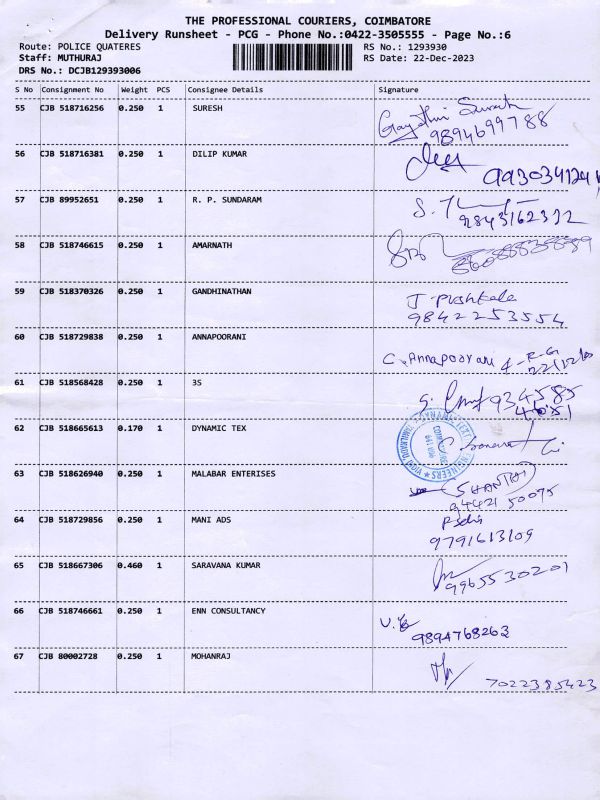 THE PROFESSIONAL COURIERS, COIMBATORE
Delivery Runsheet - PCG - Phone No.:0422-3505555 - Page No.:6
Route: POLICE QUATERES RS No.: 1293930
Staff: MUTHURAJ RS Date: 22-Dec-2023
DRS No.: DCJB129393006
S No Consignment No Weight PCS Consignee Details Signature
55 CJB 518716256 0.250 1 SURESH Gayathri Suresh
9894699788
56 CJB 518716381 0.250 1 DILIP KUMAR
57 CJB 89952651 0.250 1 R. P. SUNDARAM
9843162332
58 CJB 518746615 0.250 1 AMARNATH
59 CJB 518370326 0.250 1 GANDHINATHAN J. Pushkala
9842253554
60 CJB 518729838 0.250 1 ANNAPOORANI C. Annapoorani
61 CJB 518568428 0.250 1 3S 934585
4651
62 CJB 518665613 0.170 1 DYNAMIC TEX
63 CJB 518626940 0.250 1 MALABAR ENTERISES SHANTHI
94421 50075
64 CJB 518729856 0.250 1 MANI ADS
9791613109
65 CJB 518667306 0.460 1 SARAVANA KUMAR
9965530201
66 CJB 518746661 0.250 1 ENN CONSULTANCY
9894768263
67 CJB 80002728 0.250 1 MOHANRAJ
7022385423